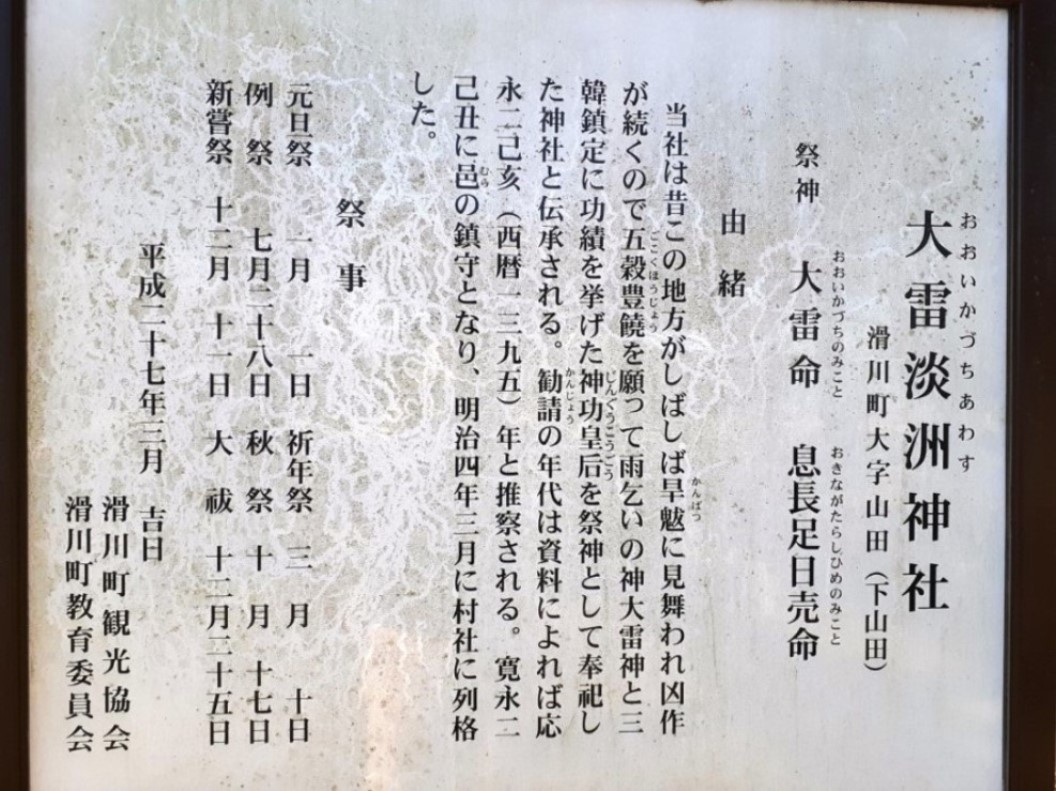 おおいかづちあわす
大雷淡洲神社
滑川町大字山田（下山田）
おおいかづちのみこと おきながたらしひめのみこと
祭神 大雷命 息長足日売命
由緒
かんばつ
当社は昔この地方がしばしば旱魃に見舞われ凶作
ごこくほうじょう
が続くので五穀豊饒を願って雨乞いの神大雷神と三
じんぐうこうごう
韓鎮定に功績を挙げた神功皇后を祭神として奉祀し
かんじょう
た神社と伝承される。勧請の年代は資料によれば応
永二己亥（西暦一三九五）年と推察される。寛永二
むら
己丑に邑の鎮守となり、明治四年三月に村社に列格
した。
祭事
元旦祭 一月 一日 祈年祭 三月 十日
例祭 七月二十八日 秋祭 十月 十七日
新嘗祭 十二月 十一日 大祓 十二月二十五日
平成二十七年三月 吉日
滑川町観光協会
滑川町教育委員会